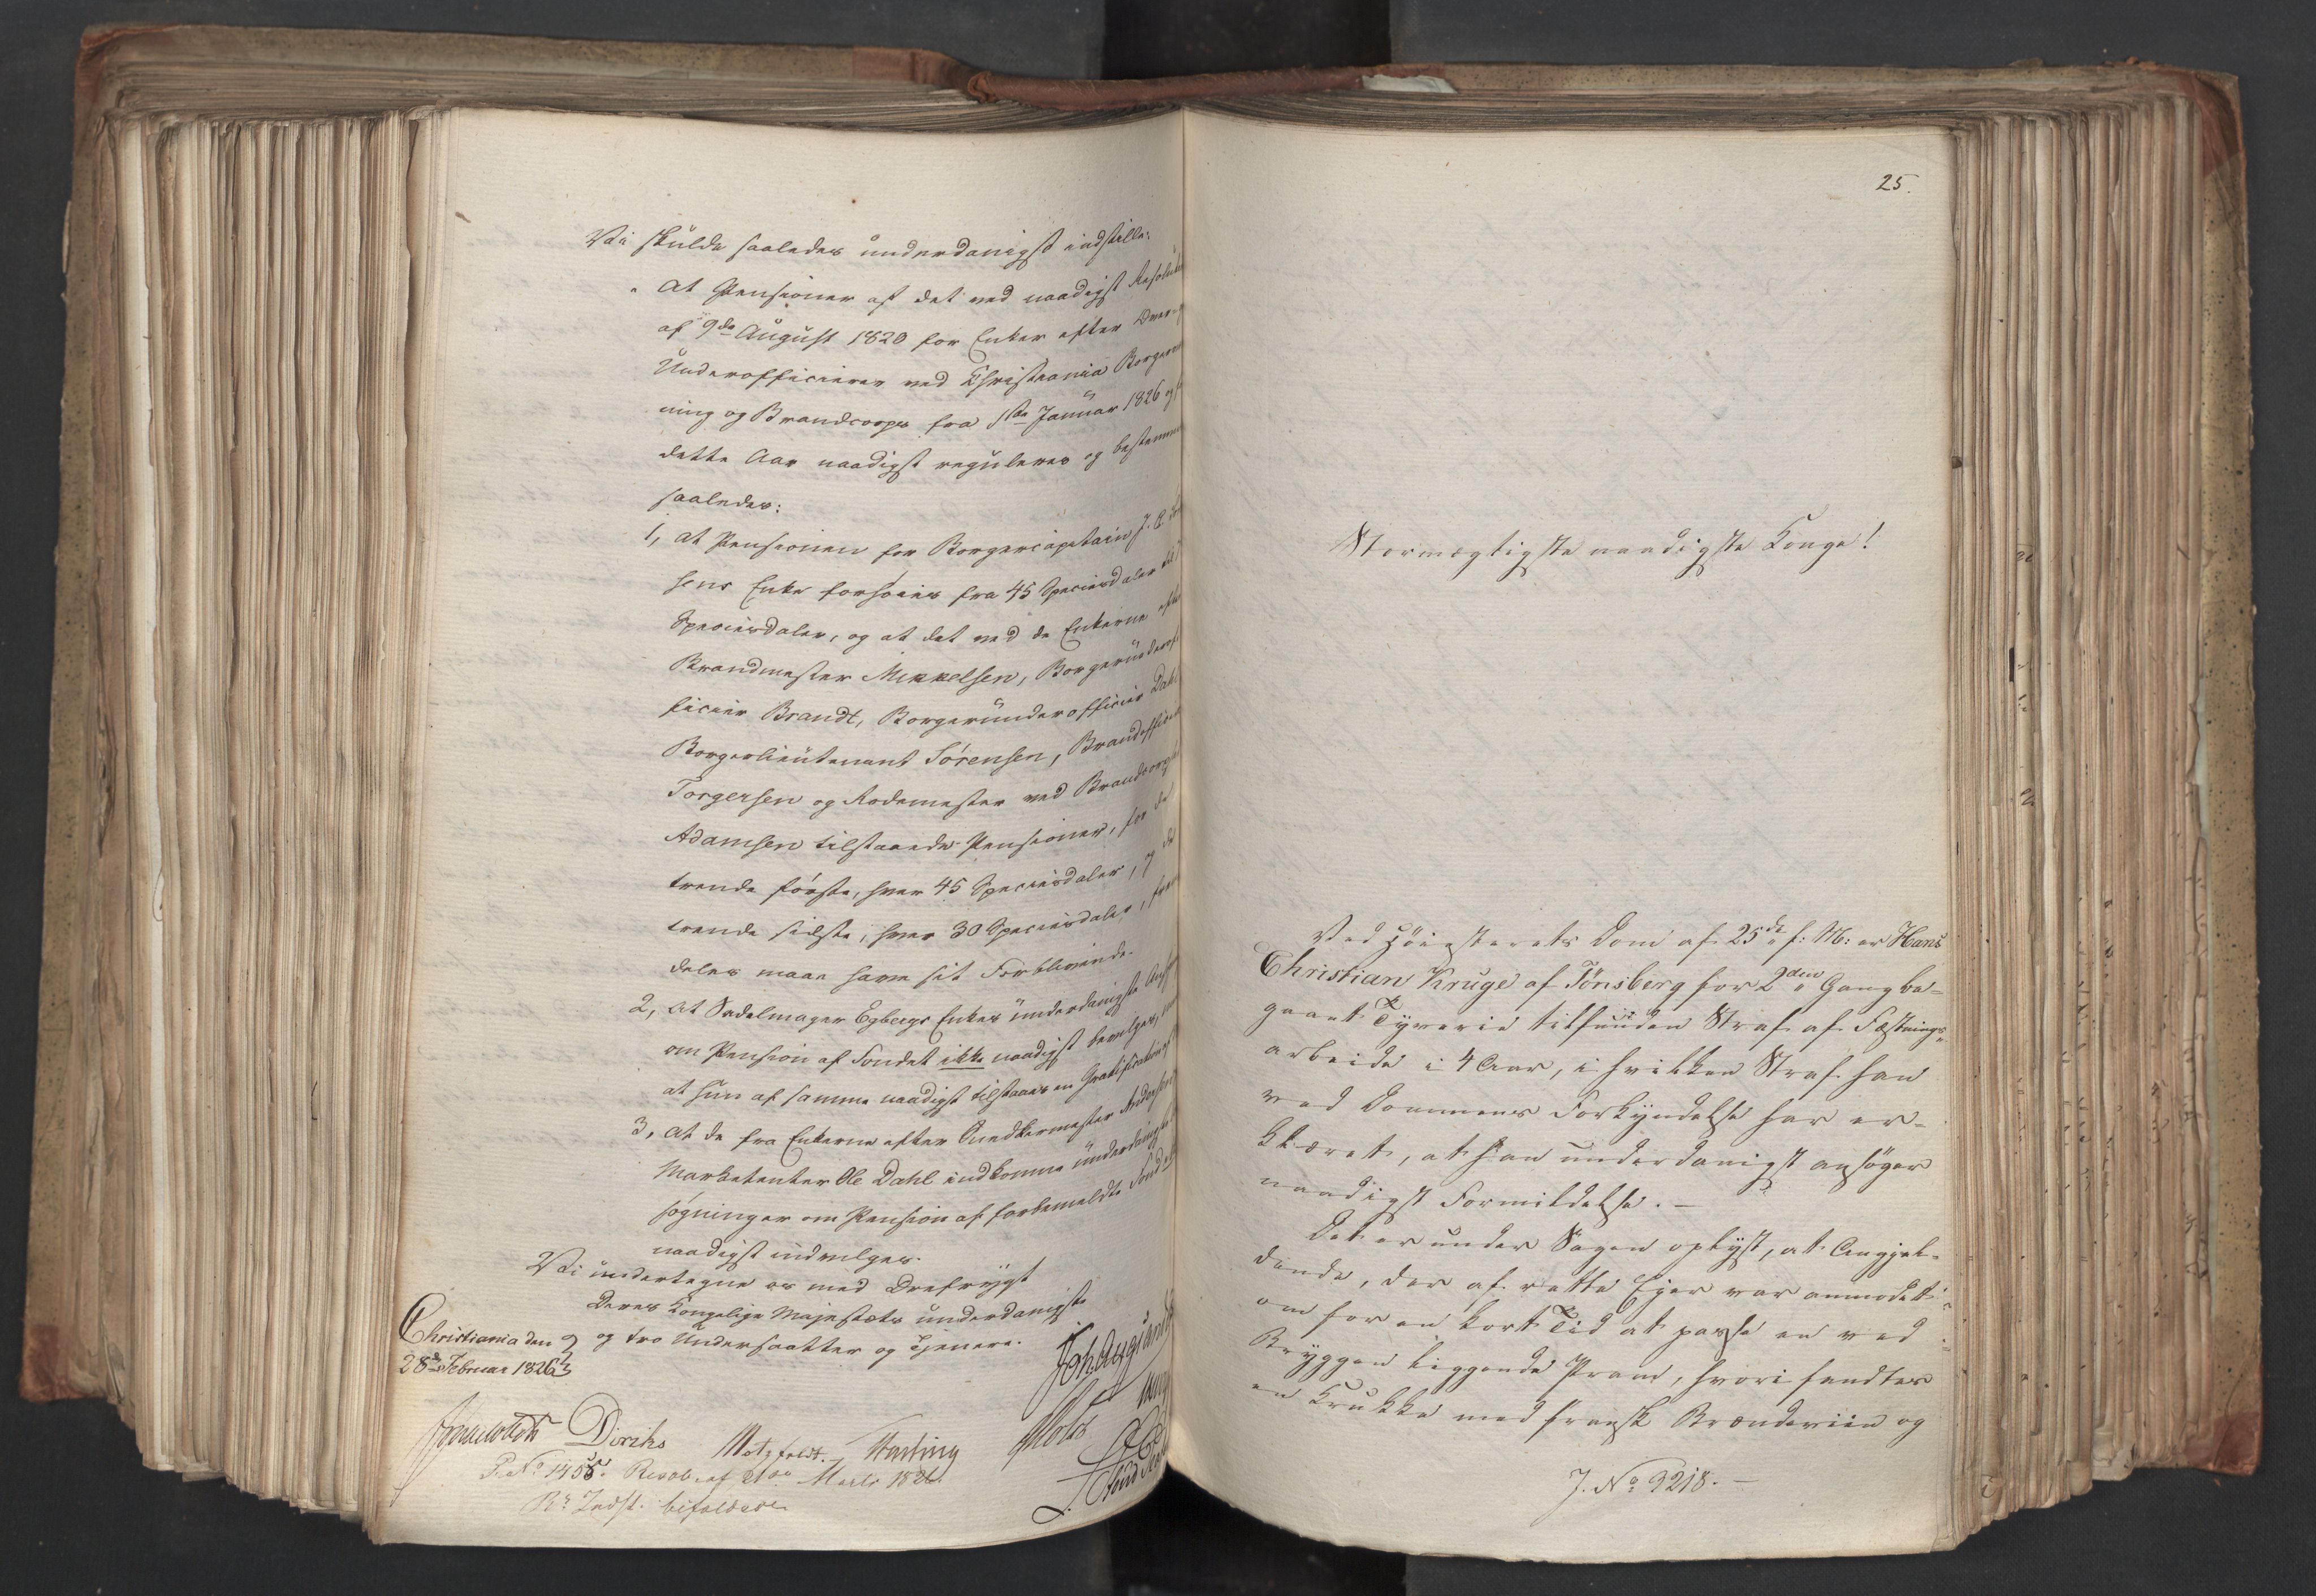 Vi skulde saaledes underdanigst indstille:
at Pensioner af det ved naadigst Resolution
af 9de August 1820 for Enker efter Over og
Underofficierer ved Christiania Borgervæb
ning og Brandcorps fra 1ste Januar 1826
dette Aar naadigst reguleres og bestemmes
saaledes:
1, at Pensionen for Borgercapitain J. C.
sens Enke forhøies fra 45 Speciesdaler til
Speciesdaler, og at det ved de Enkerne efter
Brandmester Mikkelsen, Borgerunderof
ficier Brandt, Borgerunderofficier Dahl
Borgerlieutenant Sørensen, Brandofficier
Torgersen og Rodemester ved Brandcorpset
Adamsen tilstaaede Pensioner, for de
trende første, hver 45 Speciesdaler, for de
trende sidste, hver 30 Speciesdaler, frem
deles maae have sit Forblivende.
2, at Sadelmager Egbergs Enkes underdanigste
om Pension af Fondet ikke naadigst bevilges, men
at hun af samme naadigst tilstaaes en Gratification af
3, at de fra Enkerne efter Qvarteermester Andersen
Marketenter Ole Dahl indkomne underdanigste
søgninger om Pension af forbemeldte Fond
naadigst indvilges.
Vi undertegne os med Ærefrygt
Deres Kongelige Majestæts underdanigste
og tro Undersaatter og Tjenere.
Christiania den
28de Februar 1826
Diriks Motzfeldt. Harting
P. No 1455. Resol. af 21de Marts 1826.
Rs Indst. bifaldes
25.
Stormægtigste naadigste Konge!
Ved Høiesterets Dom af 25de f: M: er Hans
Christian Kruge af Tönsberg for 2den Gang be-
gaaet Tyverie tilfunden Straf af Fæstnings-
arbeide i 4 Aar, i hvilken Straf han
ved Dommens Forkyndelse har er-
klæret, at han underdanigst ansøger
naadigst Formildelse. —
Det er under Sagen oplyst, at Angjæl-
dende, der af rette Eier var anmodet
om for en kort Tid at passe en ved
Bryggen liggende Pram, hvori fandtes
en Krukke med fransk Brændeviin og
J. No 9218. —